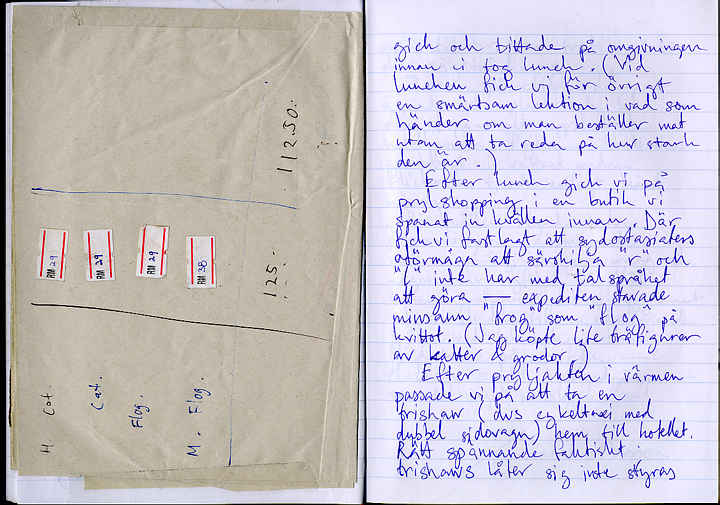 H Cat. RM 29
Cat. RM 29
Flog. RM 29
M. Flog. RM 38
125:
112.50:
gick och tittade på omgivningen
innan vi tog lunch. (Vid
lunchen fick vi för övrigt
en smärtsam lektion i vad som
händer om man beställer mat
utan att ta reda på hur stark
den är.)
Efter lunch gick vi på
prylshopping i en butik vi
spanat in kvällen innan. Där
fick vi fastlagt att sydostasiaters
oförmåga att särskilja "r" och
"l" inte har med talspråket
att göra — expediten stavade
minsann "frog" som "flog" på
kvittot. (Jag köpte lite träfigurer
av katter & grodor.)
Efter pryljakten i värmen
passade vi på att ta en
trishaw (dvs cykeltaxi med
dubbel sidovagn) hem till hotellet.
Rätt spännande faktiskt.
trishaws låter sig inte styras